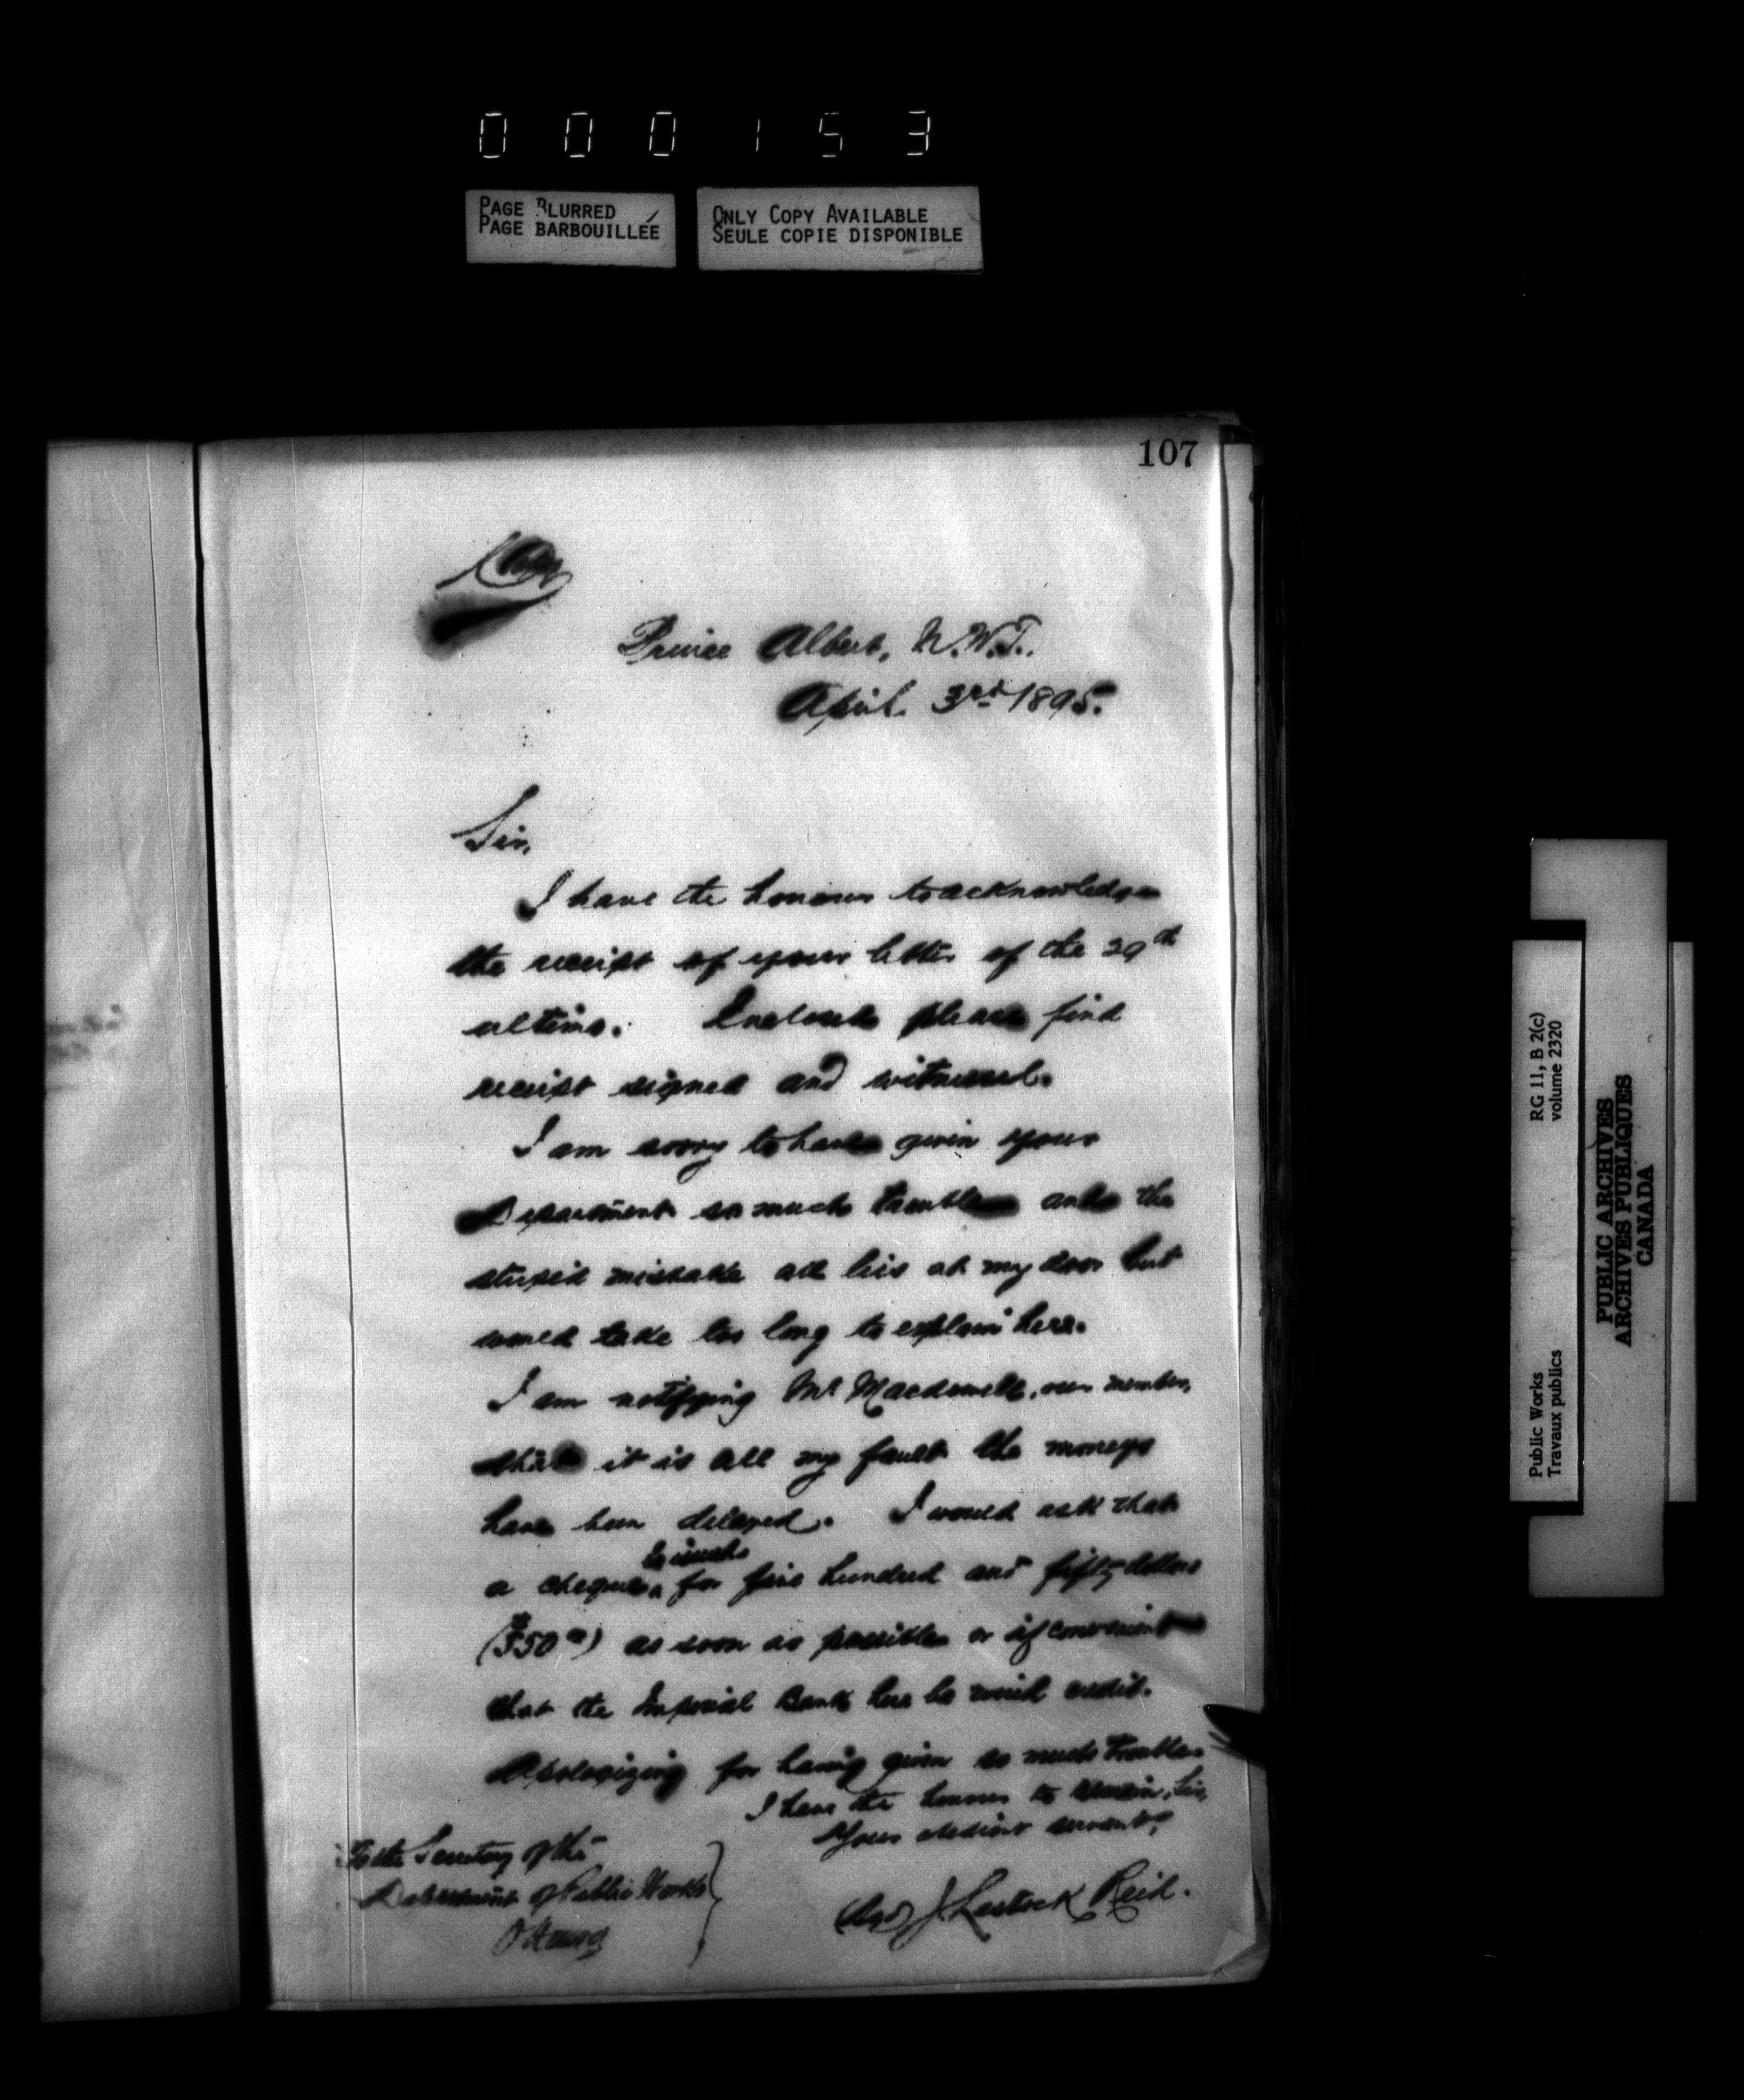 000153
PAGE BLURRED
PAGE BARBOUILLÉE
ONLY COPY AVAILABLE
SEULE COPIE DISPONIBLE
107
Copy
Prince Albert, N.W.T.
April 3rd 1895.
Sir,
I have the honour to acknowledge
the receipt of your letter of the 29th
ultimo. Enclosed please find
receipt signed and witnessed.
I am sorry to have given your
Department so much trouble and the
stupid mistake all lies at my door but
would take too long to explain here.
I am notifying Mr Macdowall, our member,
that it is all my fault the moneys
have been delayed. I would ask that
be issued
a cheque for five hundred and fifty dollars
($550 00) as soon as possible or if convenient
that the Imperial Bank here be wired credit.
Apologizing for having given so much trouble
I have the honour to remain, Sir,
Your obedient servant,
(Sgd) J Lestock Reid.
To the Secretary of the
Department of Public Works
Ottawa
RG 11, B 2(c)
volume 2320
Public Works
Travaux publics
PUBLIC ARCHIVES
ARCHIVES PUBLIQUES
CANADA